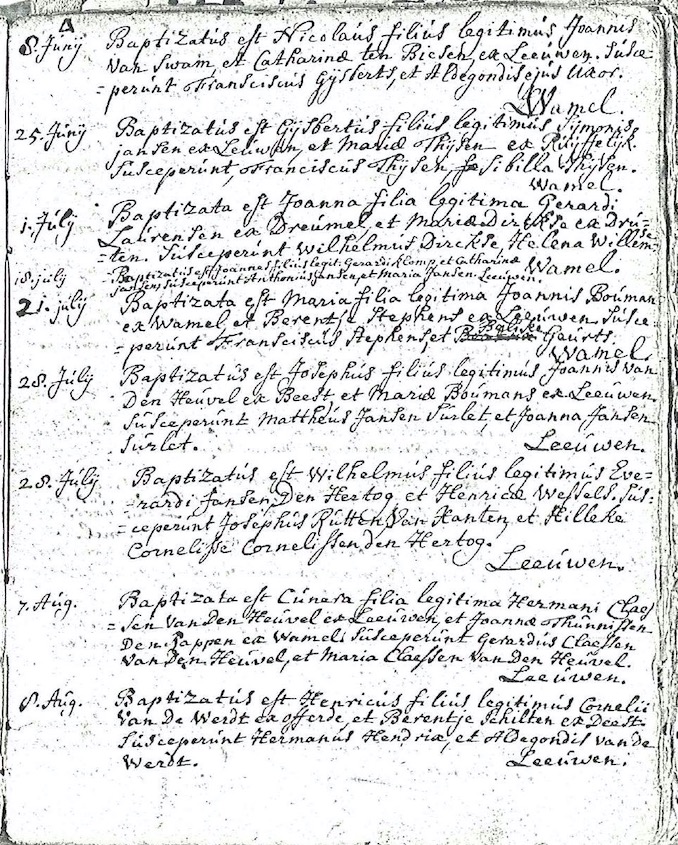 8. Junij Baptizatús est Nicolaús filiús legitimús Joannis
Van Swam, et Catharinæ ten Biesen, ex Leeúwen. Súsce-
-perúnt Franciscús Gijsberts, et Aldegondis ejús Uxor.
Wamel.
25. Júnij Baptizatús est Gijsbertús filiús legitimús Sijmonis
jansen ex Leeúwen, et Mariæ Thijsen ex
Súsceperúnt, Franciscús Thijsen, Sibilla Thijsen.
Wamel.
1. Júlij Baptizata est Joanna filia legitima Gerardi
Laúrensen ex Dreúmel, et Mariæ Dirckse ex Drú-
-ten. Súsceperúnt Wilhelmús Dirckse, Helena Willem-
Wamel.
18. júlij Baptizatús est Joannes filiús legit: Gerardi Klomp, et Catharinæ
Jansen, súsceperúnt Anthoniús Jansen, et Maria Jansen. Leeuwen.
21. júlij Baptizata est Maria filia legitima Joannis Boúman
ex Wamel, et Berentje Stephens ex Leeúwen. Súsce-
-perúnt Franciscús Stephens et Geúrts.
Wamel.
28. Júlij Baptizatús est Josephús filiús legitimús Joannis Van
Den Heúvel ex Beest, et Mariæ Boúmans ex Leeúwen
Súsceperúnt Mattheús Jansen Súrlet, et Joanna Jansen
Súrlet. Leeúwen.
28. Júlij Baptizatús est Wilhelmús filiús legitimús Eve-
-rardi Jansen Den Hertog, et Henricæ Wessels. Sús-
-ceperúnt Joséphús Rútten Van Hanten, et Hilleke
Cornelisse Cornelissen den Hertog.
Leeúwen.
7. Aúg. Baptizata est Cúnera filia legitima Hermani Claes
-sen Van Den Heúvel ex Leeúwen, et Joannæ Thúnnissen
Den Zappen ex Wamel. Súsceperúnt Gerardús Claessen
Van Den Heúvel, et Maria Claessen Van Den Heúvel.
Leeúwen.
8. Aúg. Baptizatús est Henricús filiús legitimús Cornelii
Van de Werdt ex offerde, et Berentje Schilten ex Deest.
Súsceperúnt Hermanús Hendrix, et Aldegondis van de
Werdt. Leeúwen.